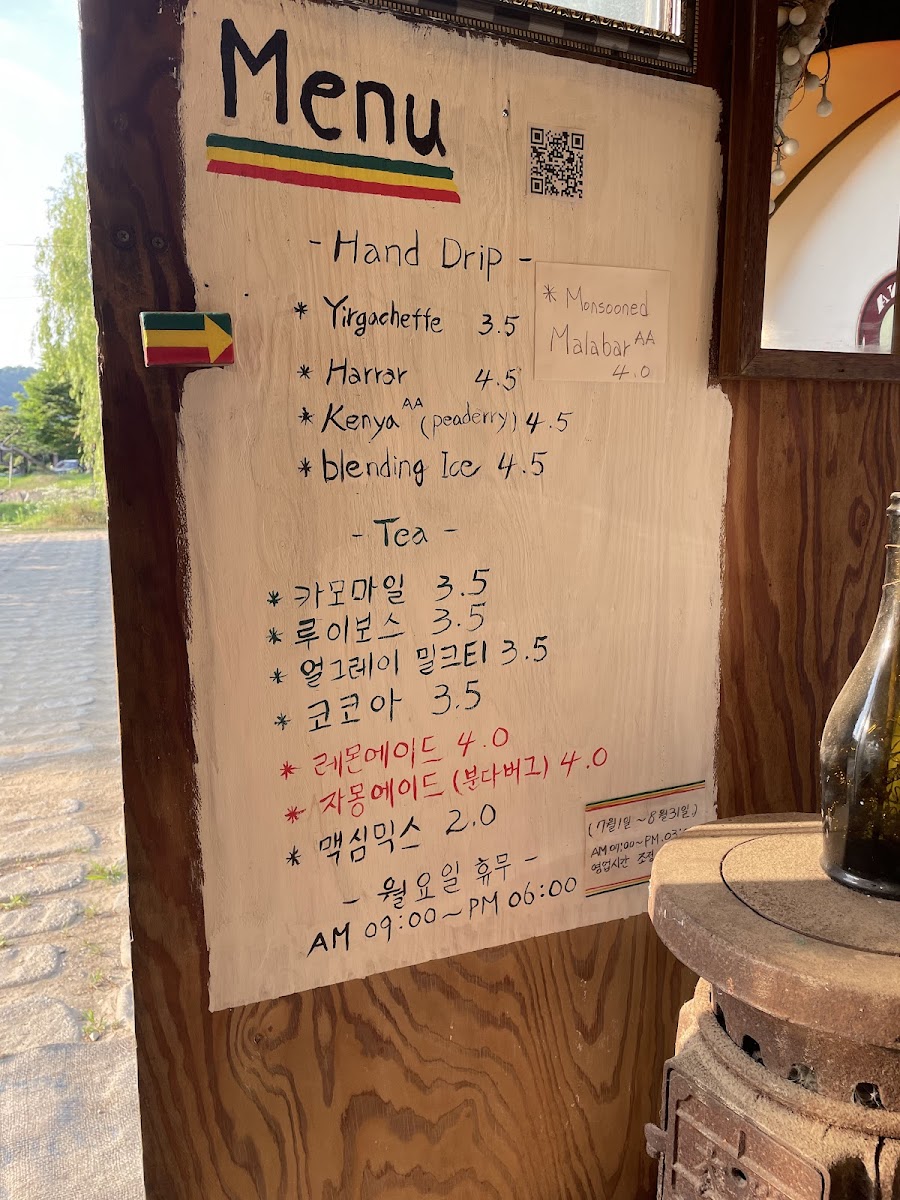 Menu
- Hand Drip -
* Yirgacheffe 3.5
* Monsooned
Malabar AA
4.0
* Harrar 4.5
* Kenya AA (peaderry) 4.5
* blending Ice 4.5
- Tea -
* 카모마일 3.5
* 루이보스 3.5
* 얼그레이 밀크티 3.5
* 코코아 3.5
* 레몬에이드 4.0
* 자몽에이드 (분다버그) 4.0
* 맥심믹스 2.0
- 월요일 휴무 -
AM 09:00~PM 06:00
(7월1일 ~8월31일)
영업시간